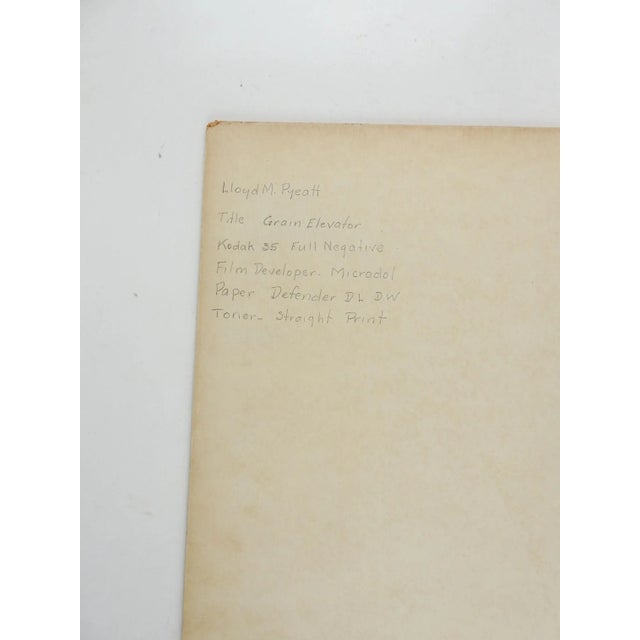 Lloyd M. Pyeatt
Title Grain Elevator
Kodak 35 Full Negative
Film Developer. Microdol
Paper Defender D L D.W
Toner- Straight Print